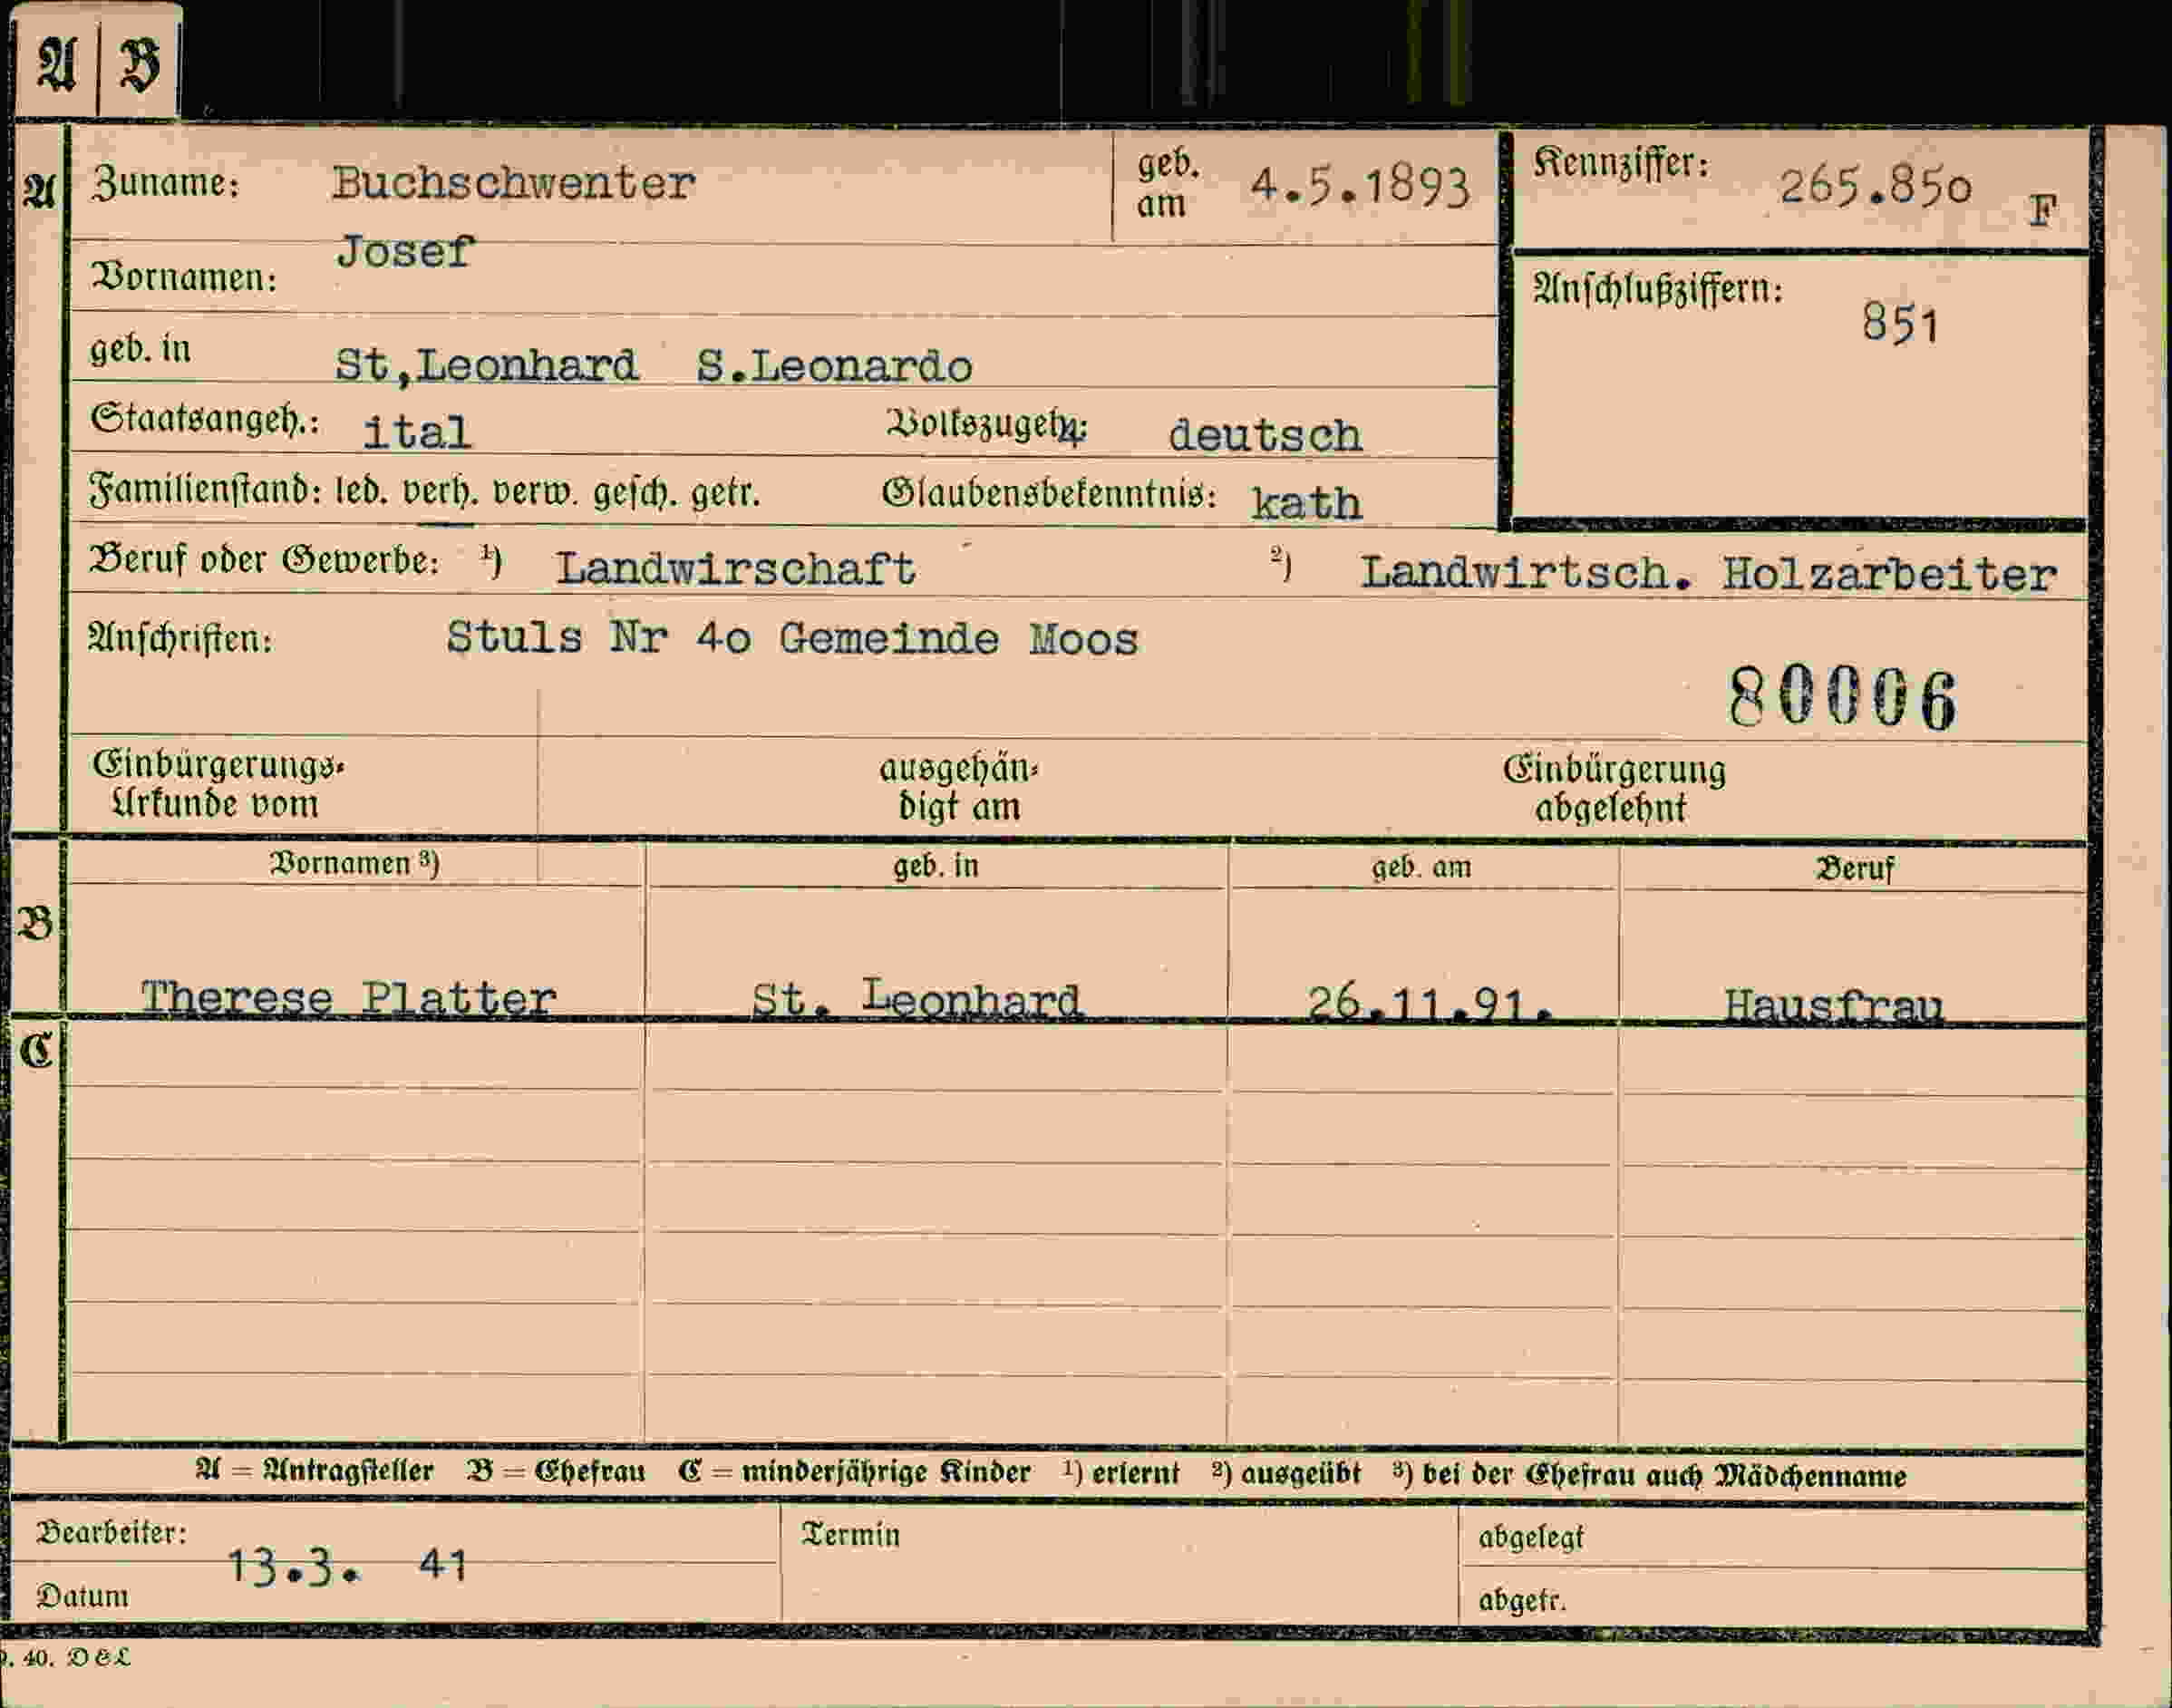 A B
A Zuname: Buchschwenter geb. am 4.5.1893 Kennziffer: 265.850 F
Vornamen: Josef
Anschlußziffern: 851
geb. in St,Leonhard S.Leonardo
Staatsangeh.: ital Volkszugeh.: deutsch
Familienstand: led. verh. verw. gesch. getr. Glaubensbekenntnis: kath
Beruf oder Gewerbe: ¹) Landwirschaft ²) Landwirtsch. Holzarbeiter
Anschriften: Stuls Nr 4o Gemeinde Moos
80006
Einbürgerungs-Urkunde vom ausgehändigt am Einbürgerung abgelehnt
Vornamen ³) geb. in geb. am Beruf
B
Therese Platter St. Leonhard 26.11.91. Hausfrau
C
A = Antragsteller B = Ehefrau C = minderjährige Kinder ¹) erlernt ²) ausgeübt ³) bei der Ehefrau auch Mädchenname
Bearbeiter: Termin abgelegt
13.3. 41
Datum abgetr.
40. D&L